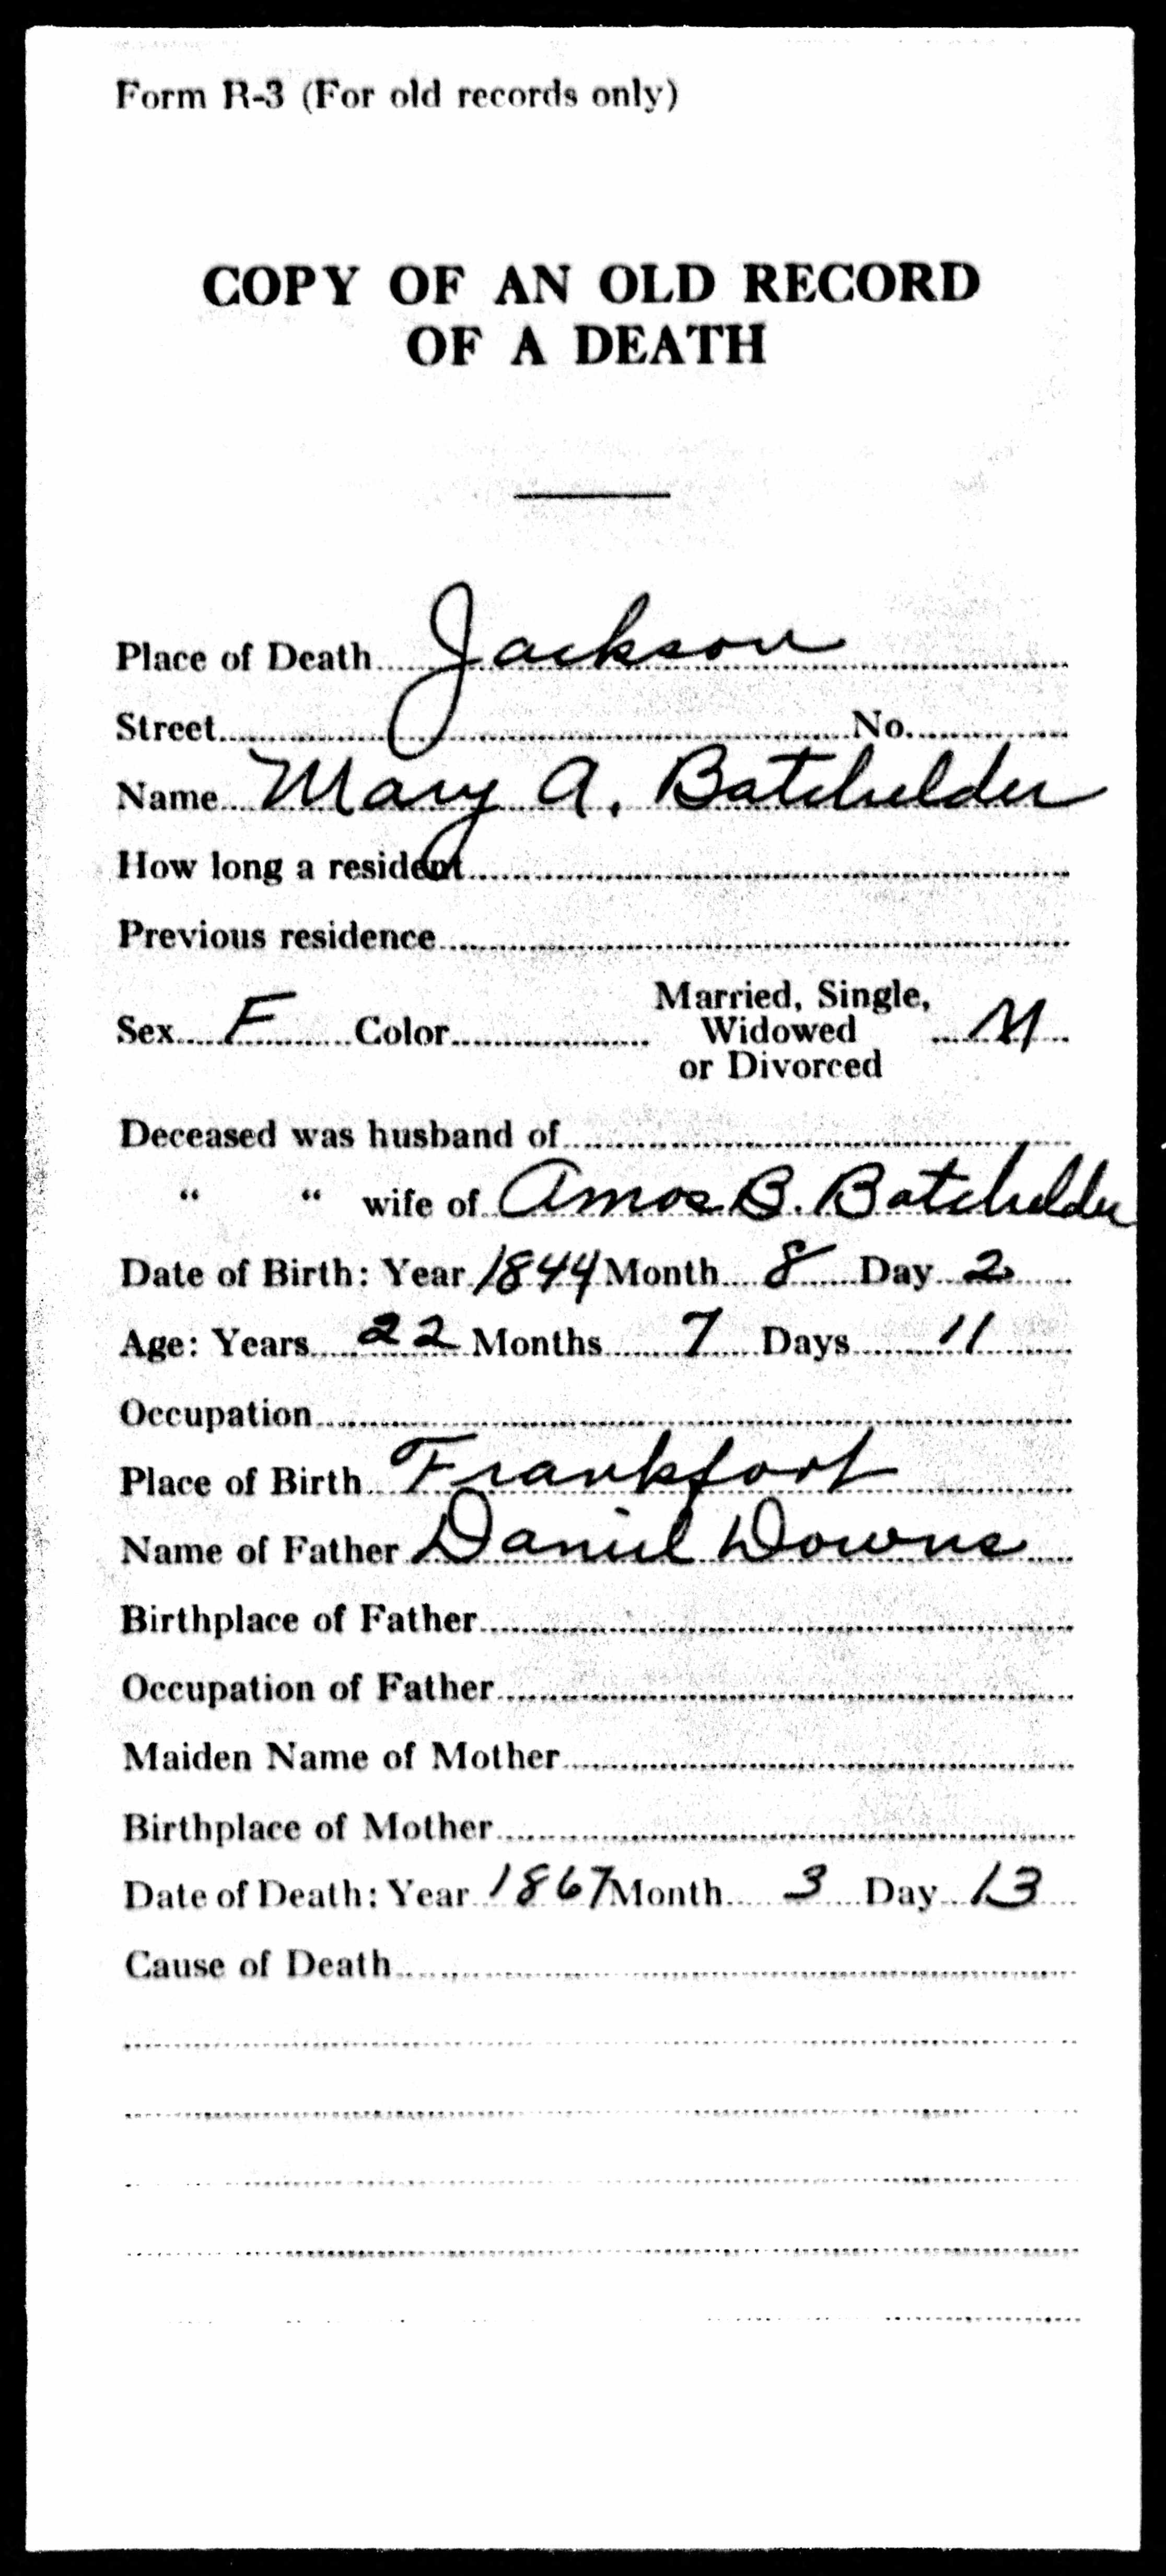 Form R-3 (For old records only)
COPY OF AN OLD RECORD
OF A DEATH
Place of Death Jackson
Street No.
Name Mary A. Batchelder
How long a resident
Previous residence
Sex F Color Married, Single, Widowed or Divorced M
Deceased was husband of
" " wife of Amos B. Batchelder
Date of Birth: Year 1844 Month 8 Day 2
Age: Years 22 Months 7 Days 11
Occupation
Place of Birth Frankfort
Name of Father Daniel Downs
Birthplace of Father
Occupation of Father
Maiden Name of Mother
Birthplace of Mother
Date of Death: Year 1867 Month 3 Day 13
Cause of Death